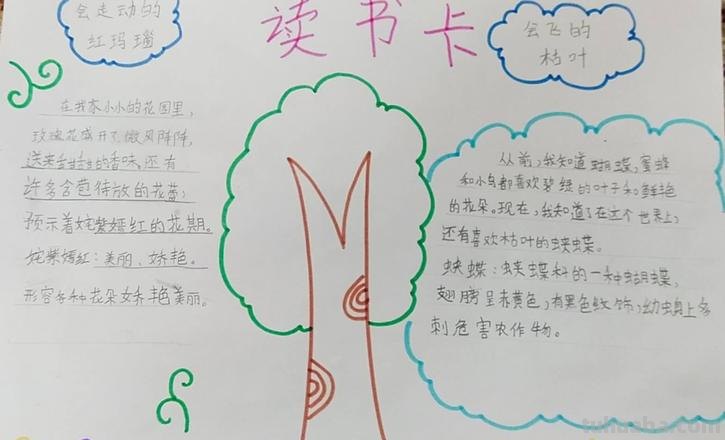 会走动的
红玛瑙
读书卡
会飞的
枯叶
在我家小小的花园里，
玫瑰花盛开了，微风阵阵，
送来甜甜的香味，还有
许多含苞待放的花蕾，
预示着姹紫嫣红的花期。
姹紫嫣红：美丽、娇艳。
形容各种花朵娇艳美丽。
从前，我知道蝴蝶，蜜蜂
和小鸟都喜欢碧绿的叶子和鲜艳
的花朵。现在，我知道了在这个世界上，
还有喜欢枯叶的蛱蝶。
蛱蝶：蛱蝶科的一种蝴蝶，
翅膀呈赤黄色，有黑色纹饰，幼虫身上多
刺危害农作物。
tuhuaba.com